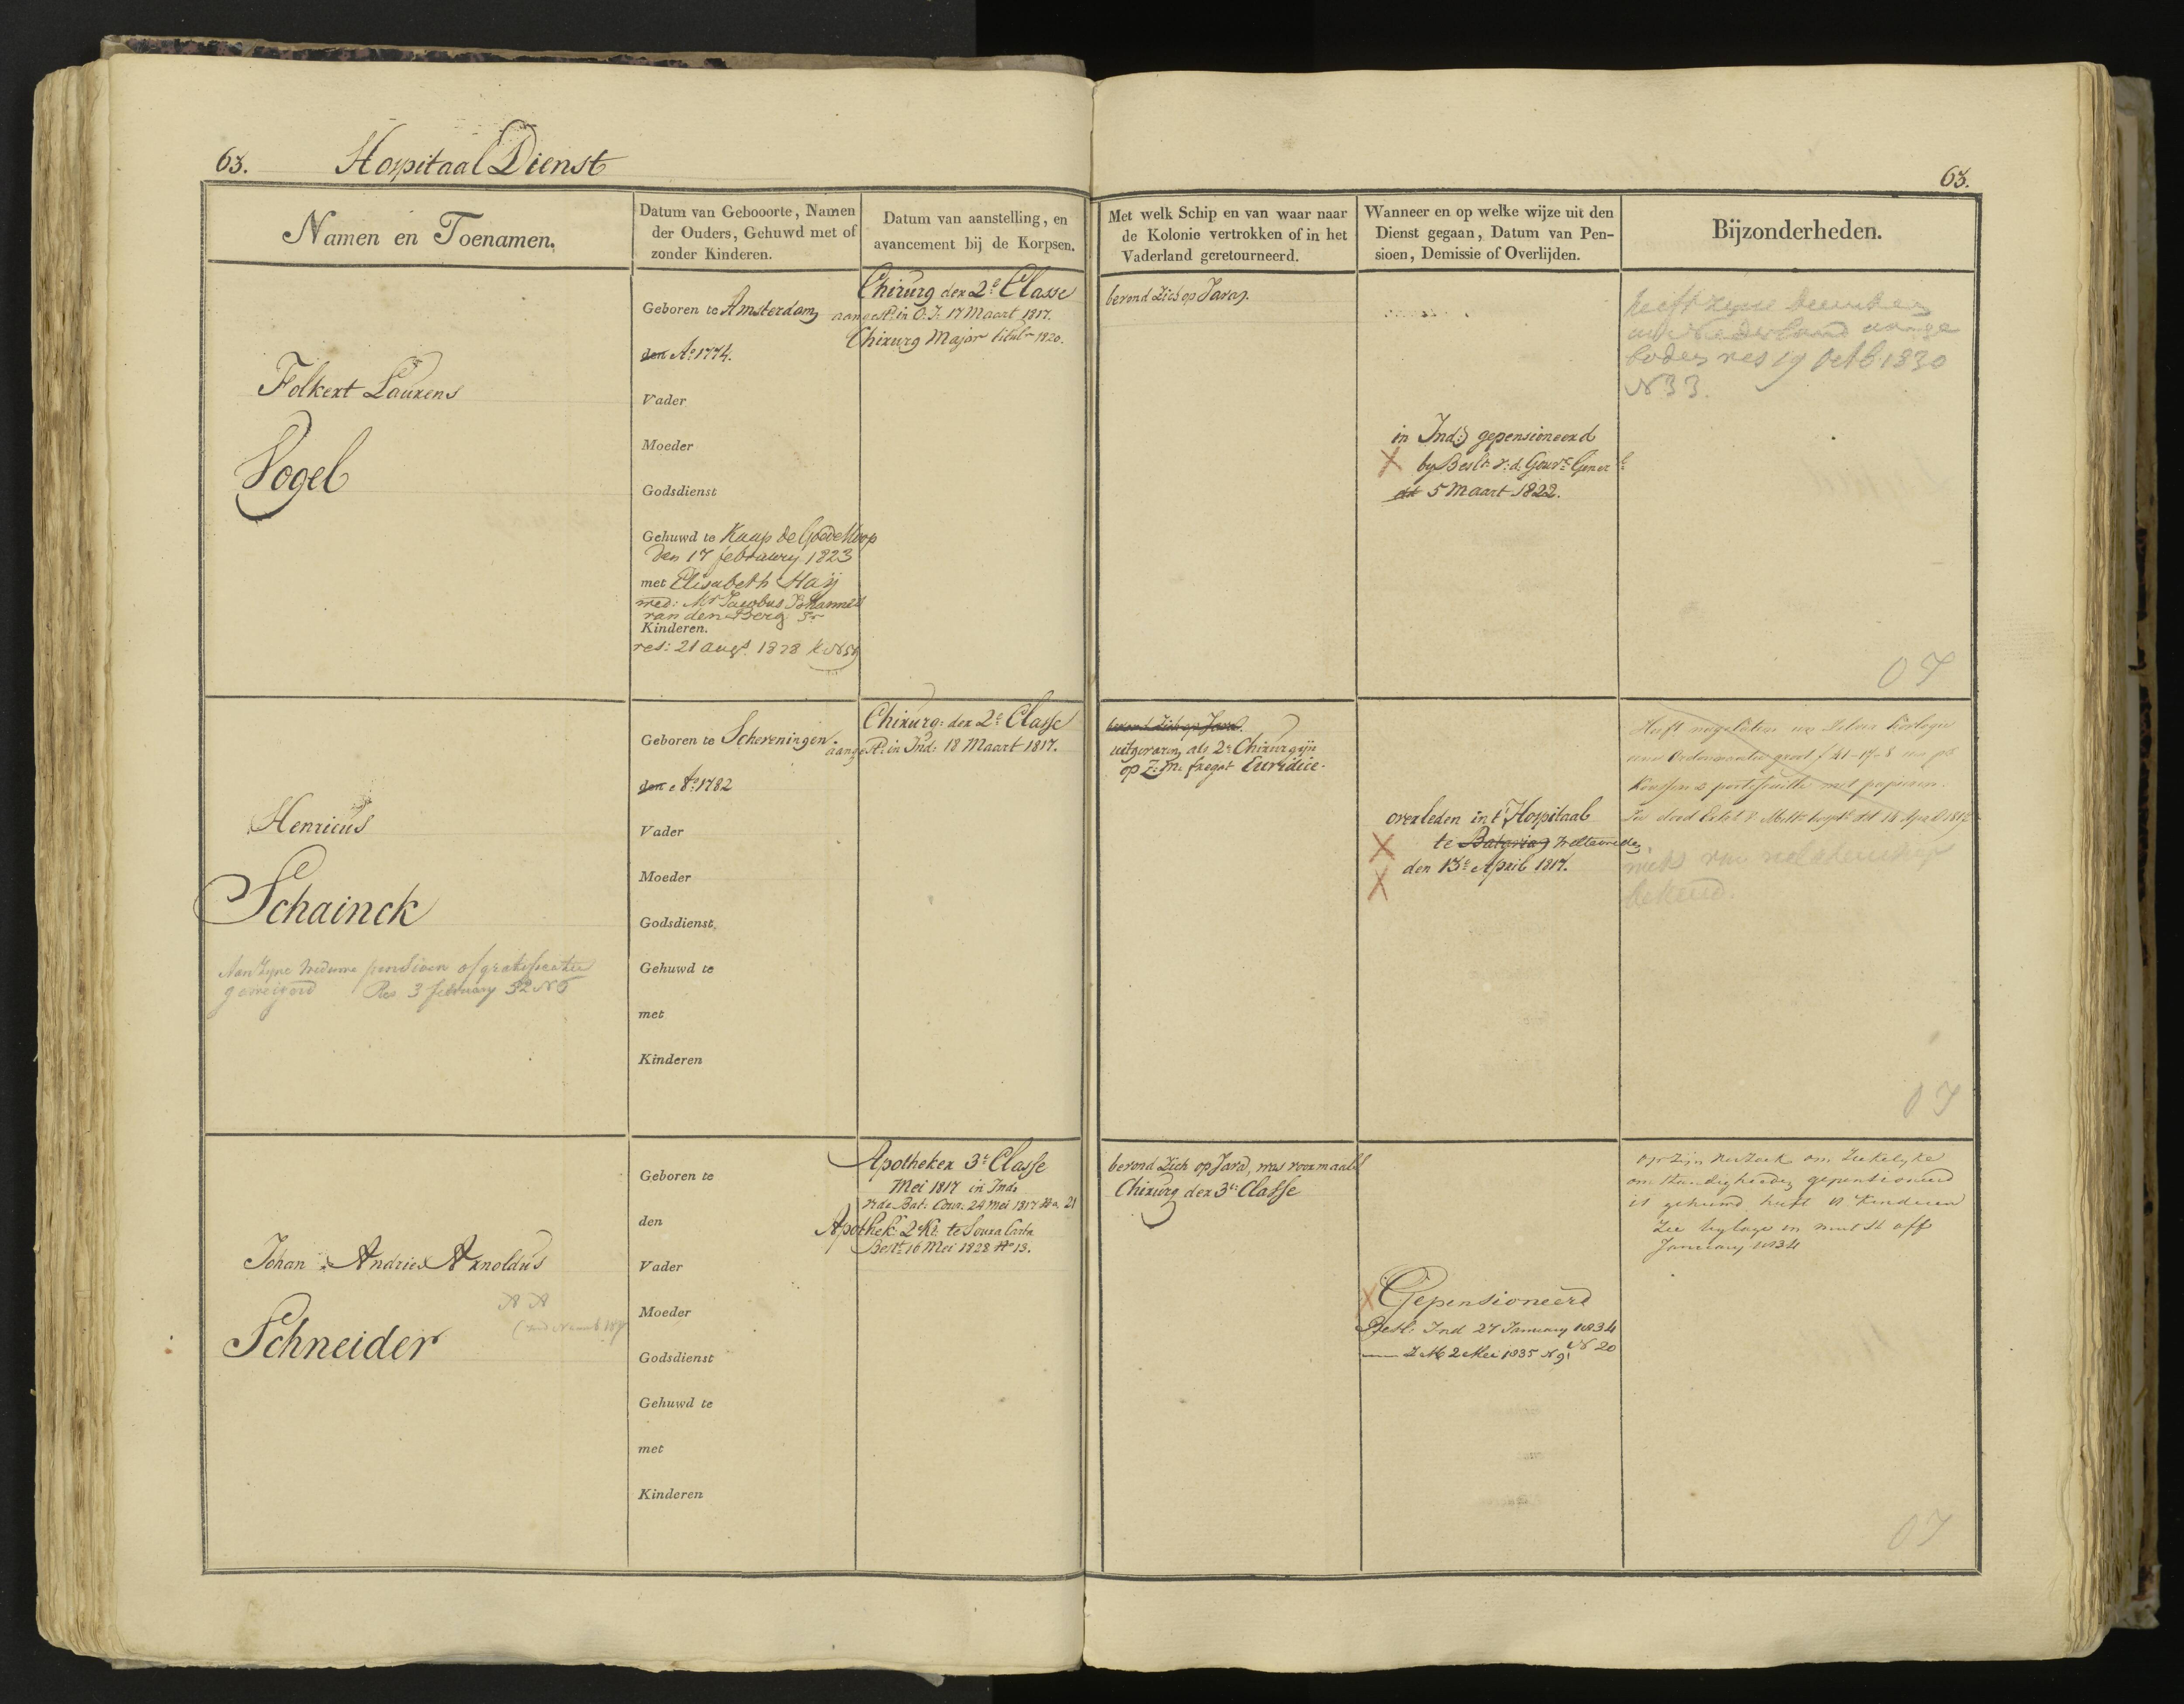 63. Hospitaal Dienst
63.
Namen en Toenamen.
Datum van Gebooorte, Namen
der Ouders, Gehuwd met of
zonder Kinderen.
Datum van aanstelling, en
avancement bij de Korpsen.
Met welk Schip en van waar naar
de Kolonie vertrokken of in het
Vaderland geretourneerd.
Wanneer en op welke wijze uit den
Dienst gegaan, Datum van Pen-
sioen, Demissie of Overlijden.
Bijzonderheden.
Folkert Laurens
Vogel
Geboren te Amsterdam
den Ao. 1774.
Vader
Moeder
Godsdienst
Gehuwd te Kaap de Goede Hoop
den 17 februarij 1823
met Elisabeth Haij
wed: Mr Jacobus Johannes
van den Berg Sr
Kinderen.
res: 21 augt. 1828 K No 59
Chirurg der 2e Classe
aangest: in O. I. 17 Maart 1817.
Chirurg Major titul 1820.
bevond Zich op Java.
in Ind: gepensioneerd
by Beslt: v: d: Gouvr: Generl:
dd 5 Maart 1822.
heeft zyne
in Nederland aange
boden res 19 Octb. 1830
N 33.
O I
Henricus
Schainck
Aan zyne Weduwe pensioen of gratificatie
geweigerd Res 3 february 32 No 5
Geboren te Scheveningen.
den Ao. 1782
Vader
Moeder
Godsdienst
Gehuwd te
met
Kinderen
Chirurg: der 2e Classe
aangest: in Ind: 18 Maart 1817.
bevond Zich op Java.
uitgevaren als 2e Chirurgijn
op Z: M: fregat Euridice.
overleden in t Hospitaal
te Batavia Weltevreden
den 13e April 1817.
Heeft nagelaten
een Ordonnantie groot f 41-17-8
Koussen 2 portefeuille met papieren.
niets van nalatenschap
bekend.
O I
Johan Andries Arnoldus
A A
Schneider
Geboren te
den
Vader
Moeder
Godsdienst
Gehuwd te
met
Kinderen
Apotheker 3e Classe
Mei 1817 in Ind:
v: de Bat: Cour. 24 Mei 1817 No. 21
Apothek: 2 Kl: te Soura Carta
Beslt: 16 Mei 1828 No 13.
bevond Zich op Java, was voormaals
Chirurg der 3e Classe
Gepensioneerd
Besl: Ind 27 January 1834
N 20
— Z M 2 Mei 1835 N 91
op zijn verzoek om Ziekelyke
omstandigheden gepensioneerd
is gehuwd heeft 11 Kinderen
Zie bylage in mut St off
January 1834
O I